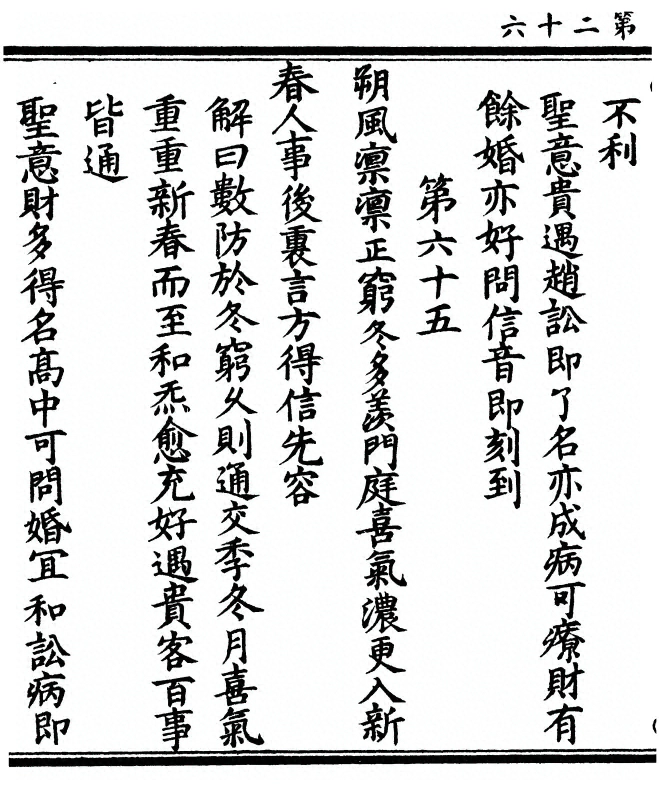 第二十六
不利
聖意貴遇趙訟即了名亦成病可療財有
餘婚亦好問信音即刻到
第六十五
朔風凛凛正窮冬多羨門庭喜氣濃更入新
春人事後裏言方得信先容
解曰數防於冬窮乆則通交季冬月喜氣
重重新春而至和炁愈充好遇貴客百事
皆通
聖意財多得名髙中可問婚冝和訟病即